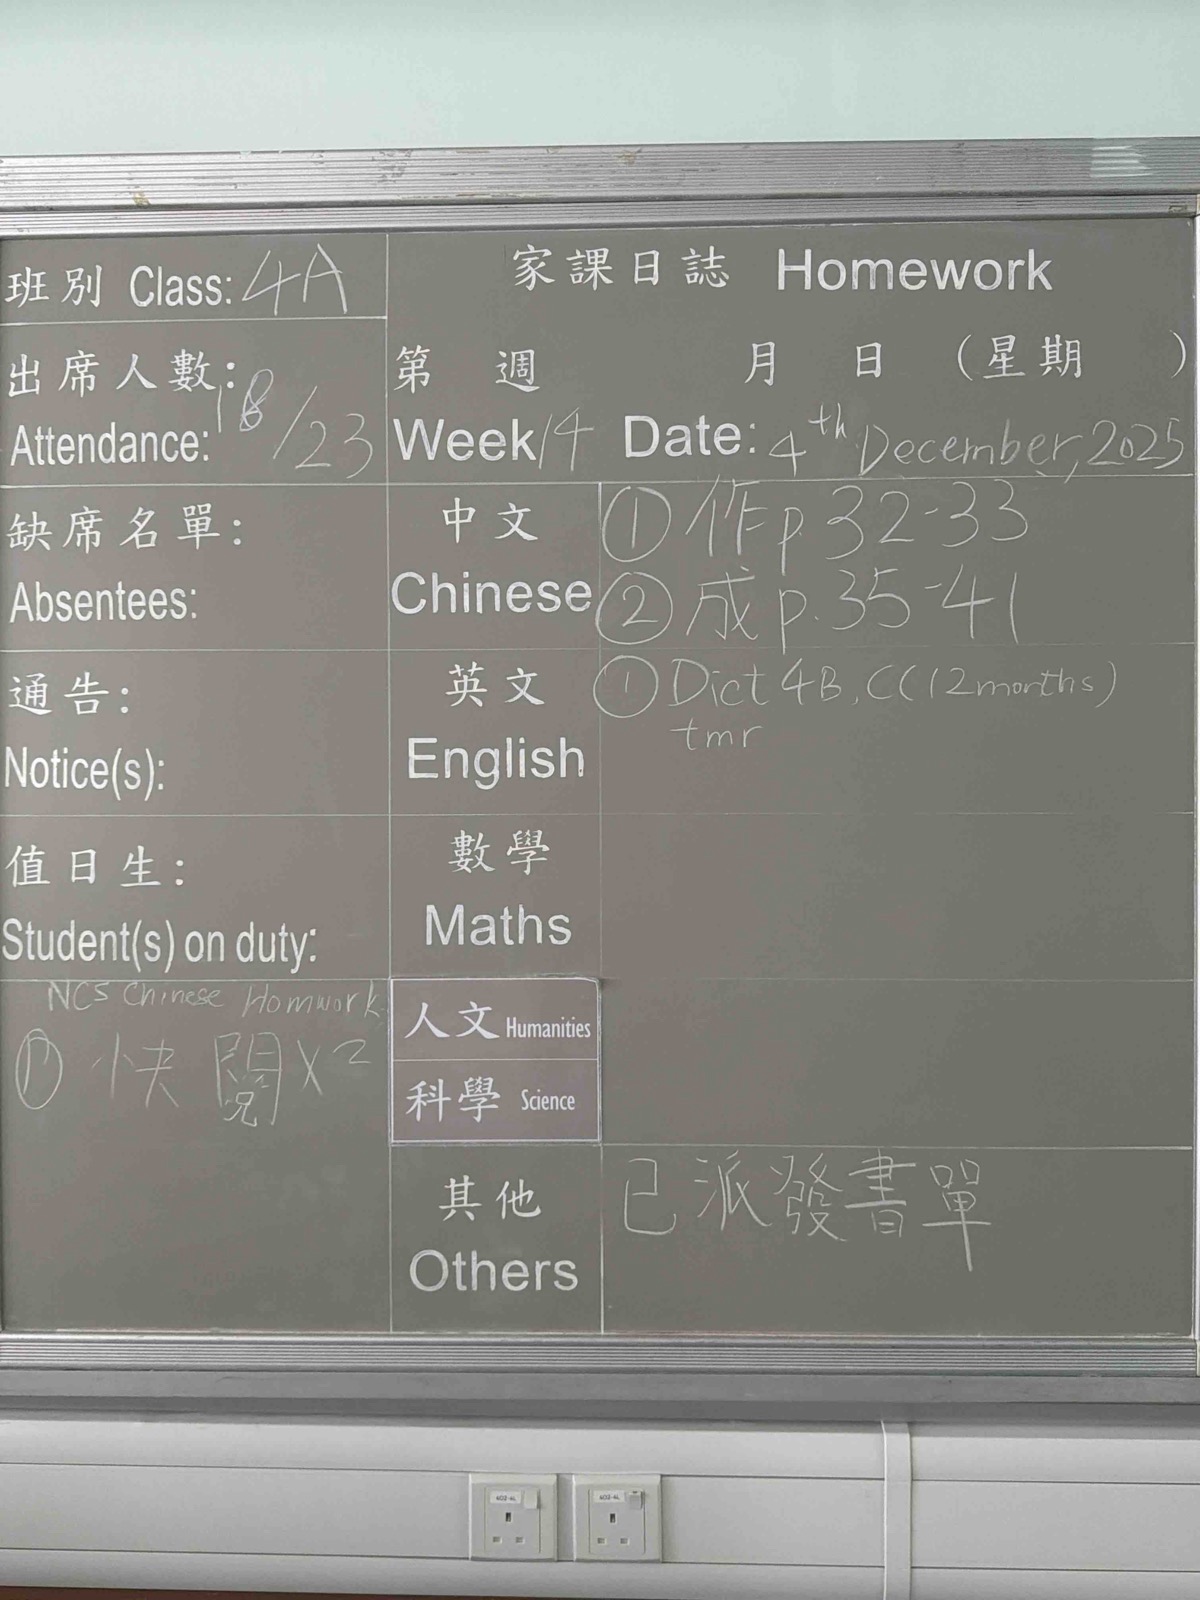 班別 Class: 4A
出席人數:
Attendance: 18/23
缺席名單:
Absentees:
通告:
Notice(s):
值日生:
Student(s) on duty:
NCS Chinese Homwork
① 快閱X2
家課日誌 Homework
第 週 月 日 (星期 )
Week 14 Date: 4th December, 2025
中文 ① 作p.32-33
Chinese ② 成p.35-41
英文 ① Dict 4B, C((12months)
English tmr
數學
Maths
人文 Humanities
科學 Science
其他 已派發書單
Others